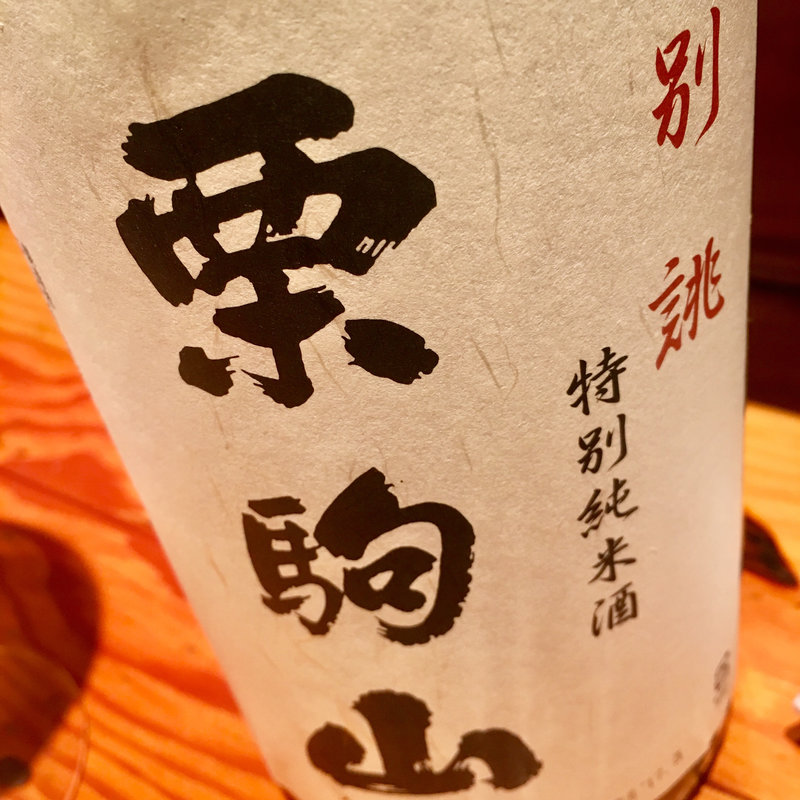 別誂
特別純米酒
栗駒山